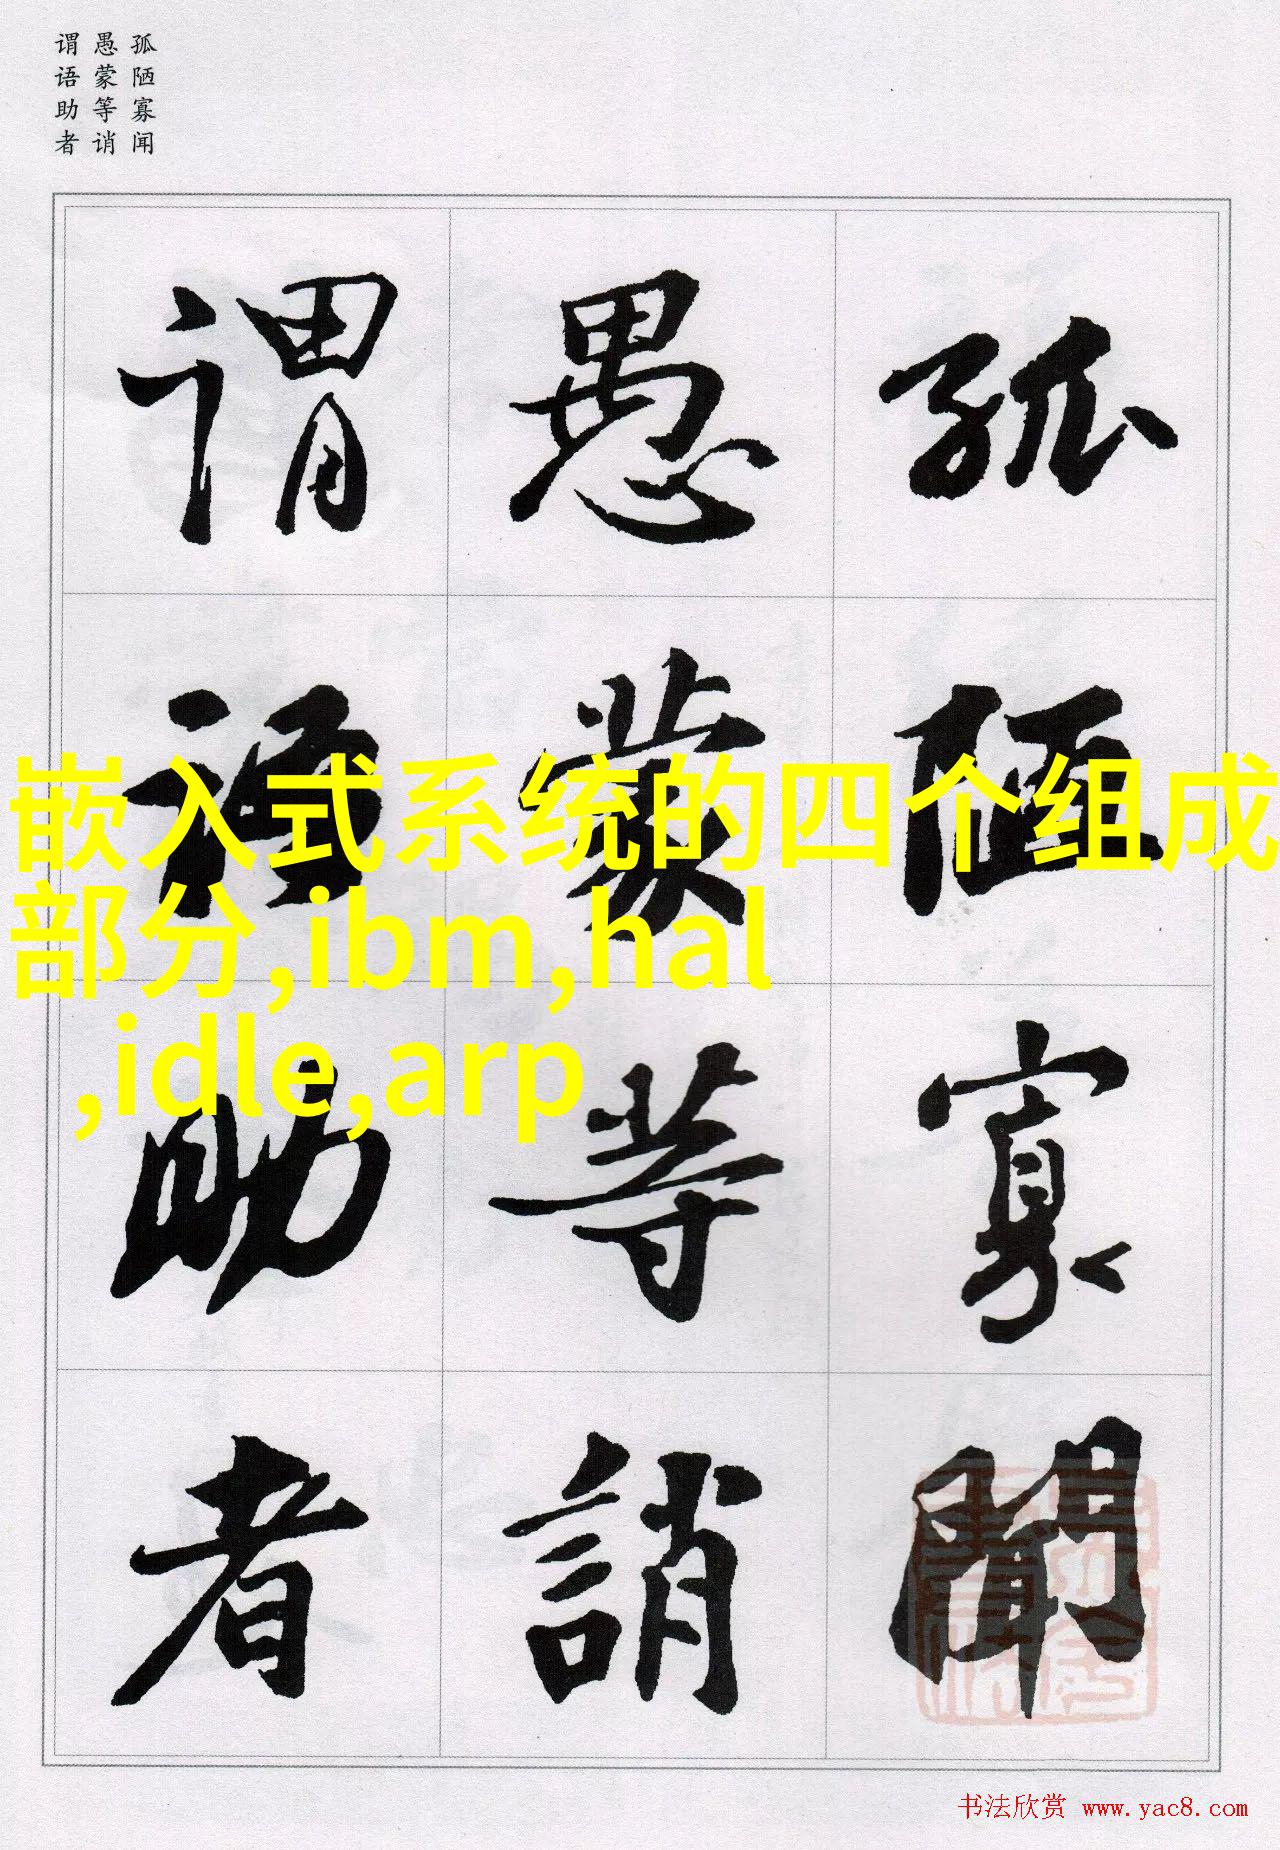 孤陋寡闻
愚蒙等诮
谓语助者
孤陋寡闻
愚蒙等誚
谓语助者
嵌入式系统的四个组成
部分,ibm,hal
,idle,arp
书法欣赏 www.yac8.com